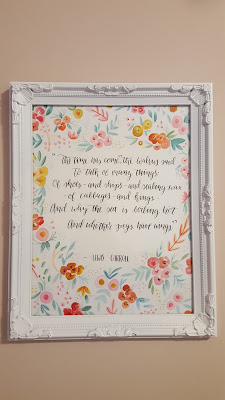 "The time has come," the walrus said
To talk of many things:
Of shoes - and ships - and sealing wax
of cabbages - and kings
And why the sea is boiling hot
And whether pigs have wings"
- LEWIS CARROLL